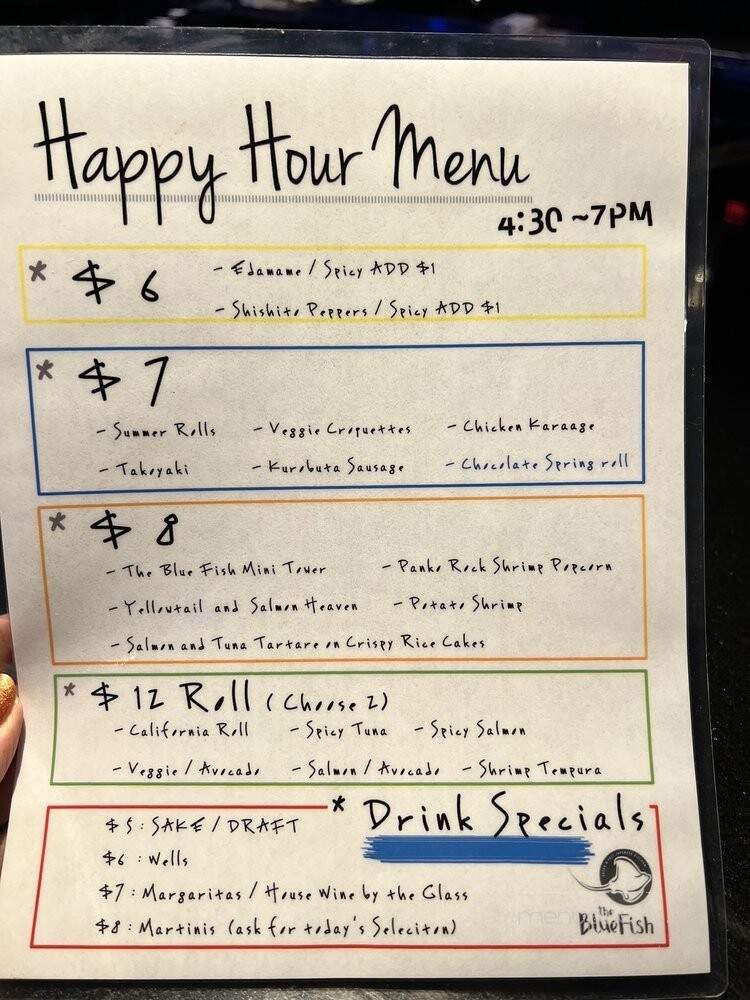 Happy Hour Menu
4:30 ~7PM
* $ 6
- Edamame / Spicy ADD $1
- Shishito Peppers / Spicy ADD $1
* $ 7
- Summer Rolls - Veggie Croquettes - Chicken Karaage
- Takoyaki - Kurobuta Sausage - Chocolate Spring roll
* $ 8
- The Blue Fish Mini Tower - Panko Rock Shrimp Popcorn
- Yellowtail and Salmon Heaven - Potato Shrimp
- Salmon and Tuna Tartare on Crispy Rice Cakes
* $ 12 Roll (Choose 2)
- California Roll - Spicy Tuna - Spicy Salmon
- Veggie / Avocado - Salmon / Avocado - Shrimp Tempura
* Drink Specials
$5 : SAKE / DRAFT
$6 : Wells
$7 : Margaritas / House Wine by the Glass
$8 : Martinis (ask for today's Seleciton)
the
BlueFish